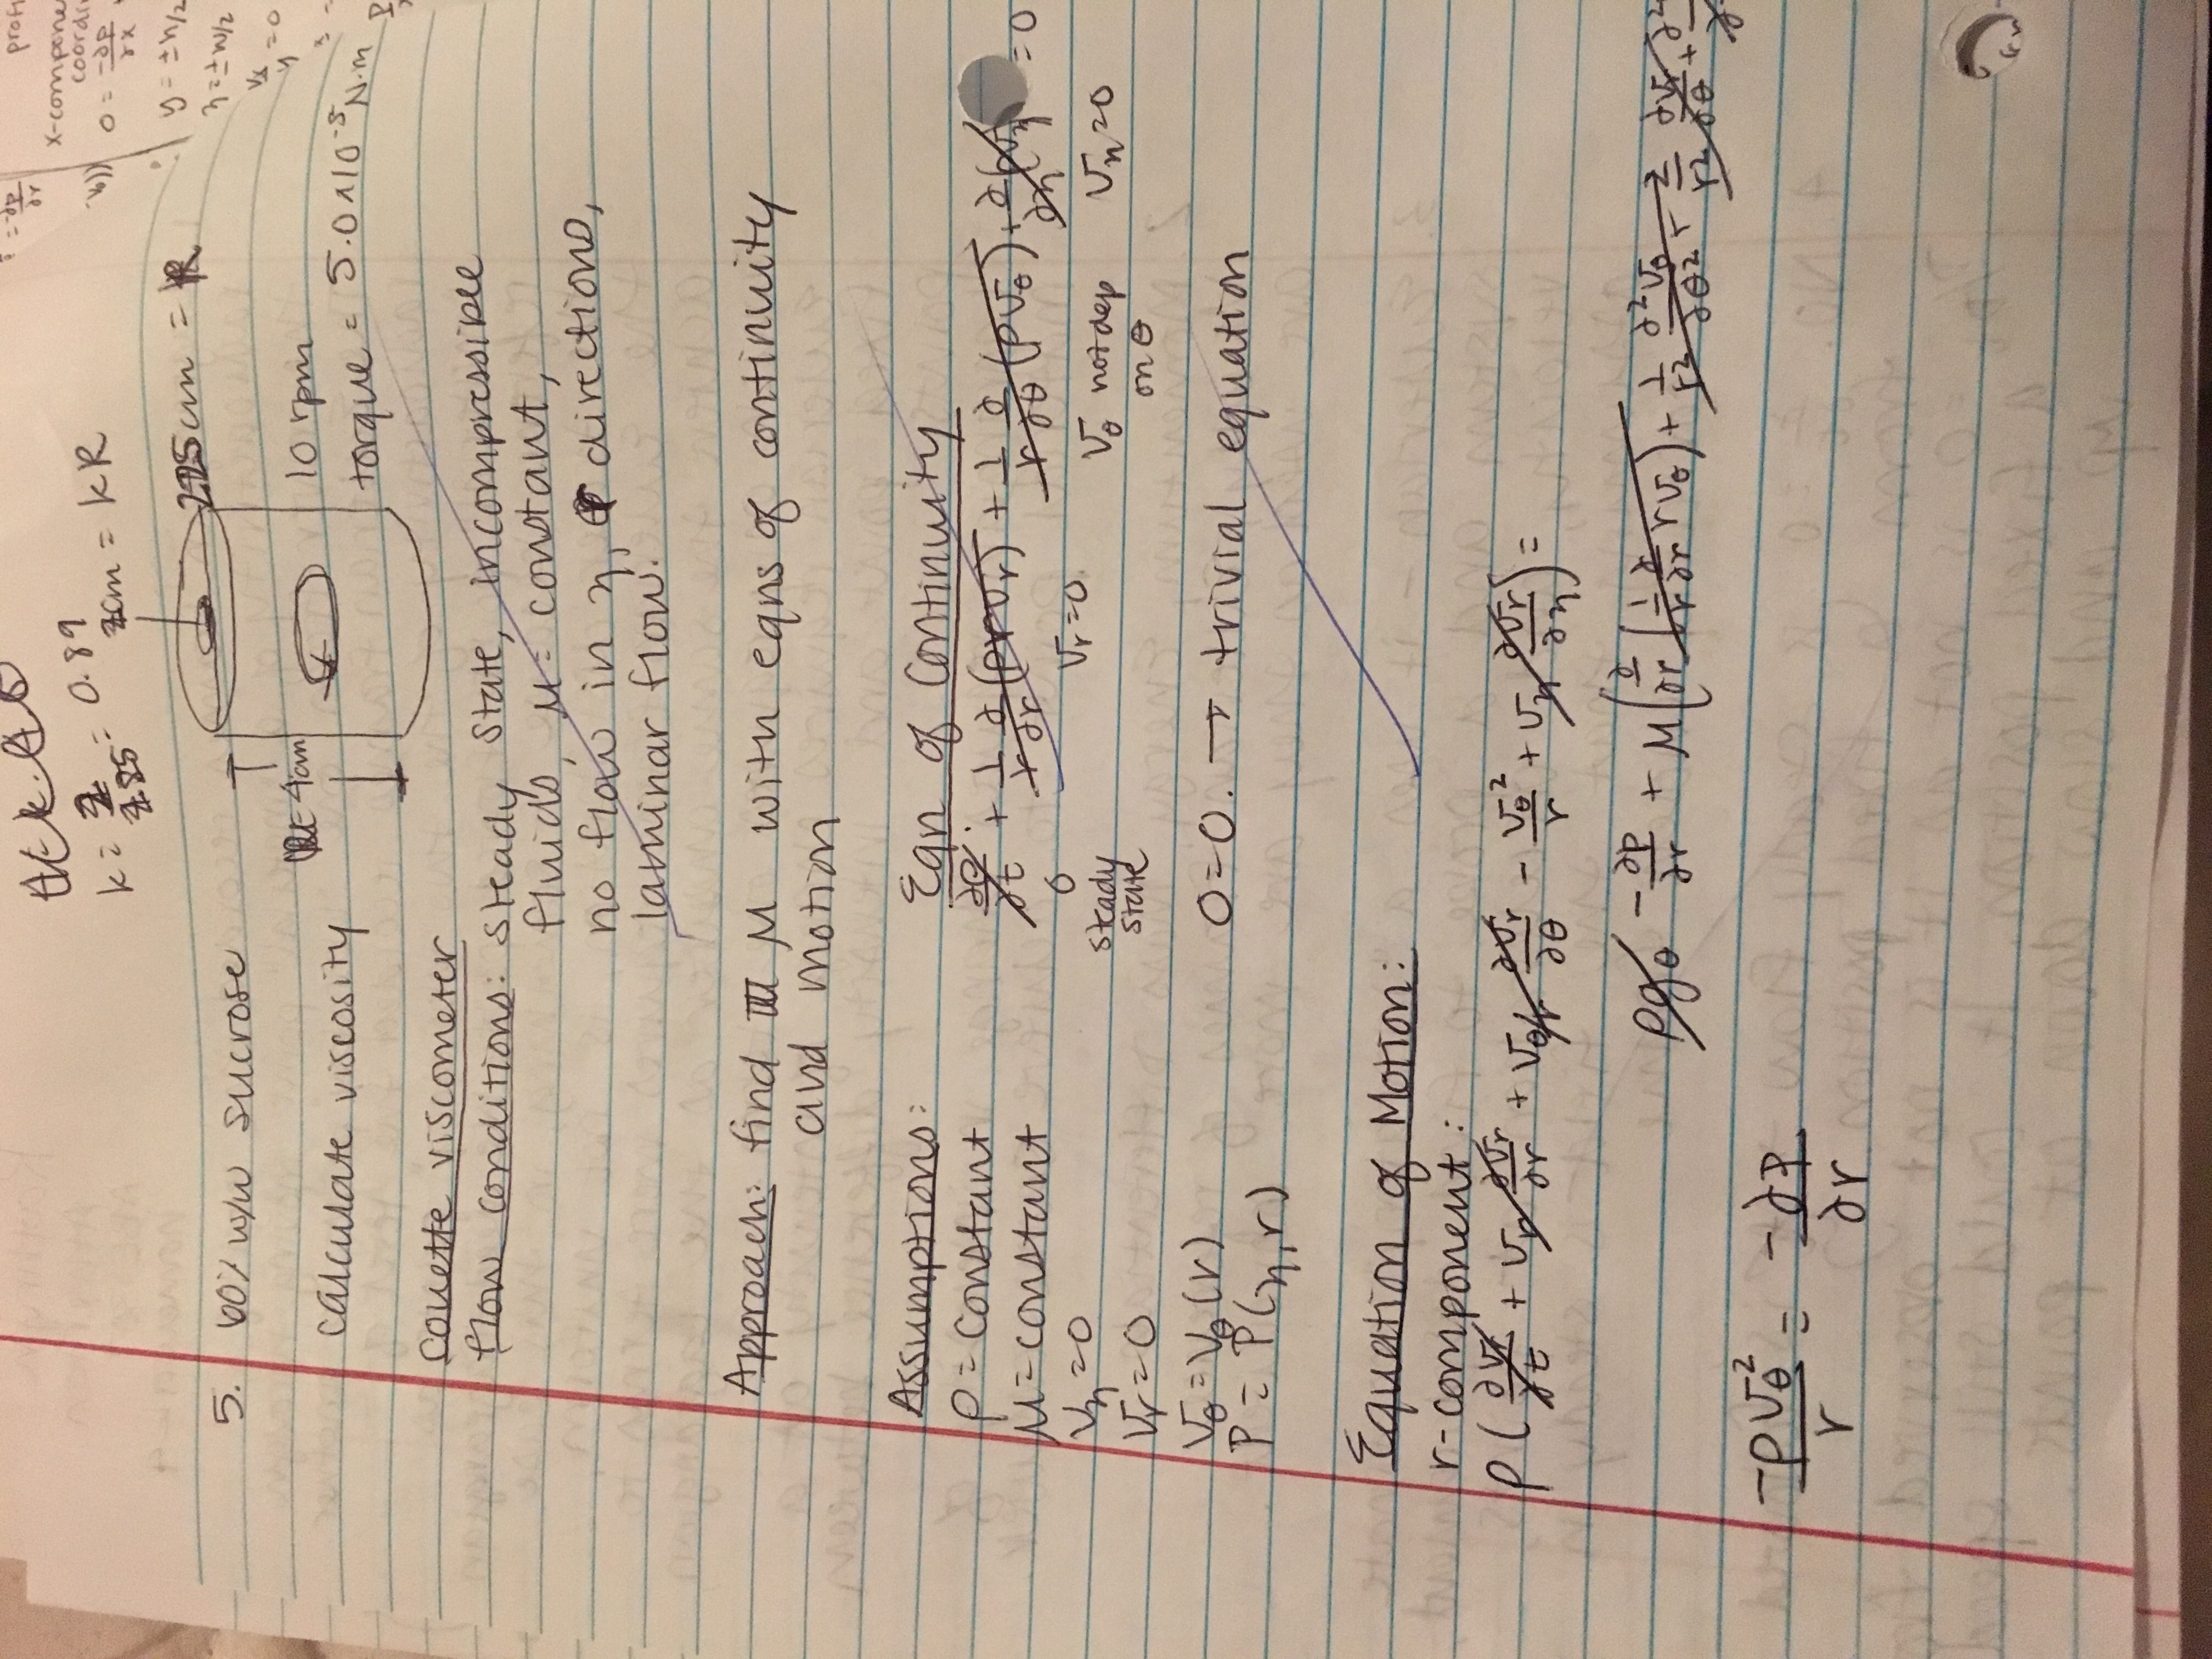 k = 2/2.25 = 0.89
2cm = kR
2.25cm = R
5. 60% w/w sucrose
4cm
10 rpm
calculate viscosity
torque = 5.0x10⁻⁵ N·m
couette viscometer
flow conditions: steady state, incompressible
fluids, μ = constant,
no flow in z, r directions,
laminar flow.
Approach: find μ with eqns of continuity
and motion
Assumptions:
ρ = constant
μ = constant
Vz = 0
Vr = 0
Vθ = Vθ(r)
P = P(z, r)
Eqn of Continuity
∂ρ/∂t + 1/r ∂/∂r (ρrVr) + 1/r ∂/∂θ (ρVθ) + ∂/∂z (ρVz) = 0
0
steady
state
Vr = 0
Vθ not dep
on θ
Vz = 0
0 = 0. → trivial equation
Equation of Motion:
r-component:
ρ( ∂Vr/∂t + Vr ∂Vr/∂r + Vθ/r ∂Vr/∂θ - Vθ²/r + Vz ∂Vr/∂z ) =
ρgθ - ∂p/∂r + μ( ∂/∂r ( 1/r ∂/∂r rVθ ) + 1/r² ∂²Vθ/∂θ² - 2/r² ∂Vr/∂θ + ∂²
-ρVθ²/r = -∂p/∂r
= -∂p/∂r
x-compone
coordi
0 = -∂p/∂x
y = ±h/2
z = ±w/2
Vx
= 0
y